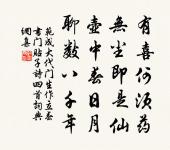 有喜何須藥
無塵即是仙
壺中春日月
聊數八千年
范成大代門生作立春
書門貼子詩四首詞典
網喜